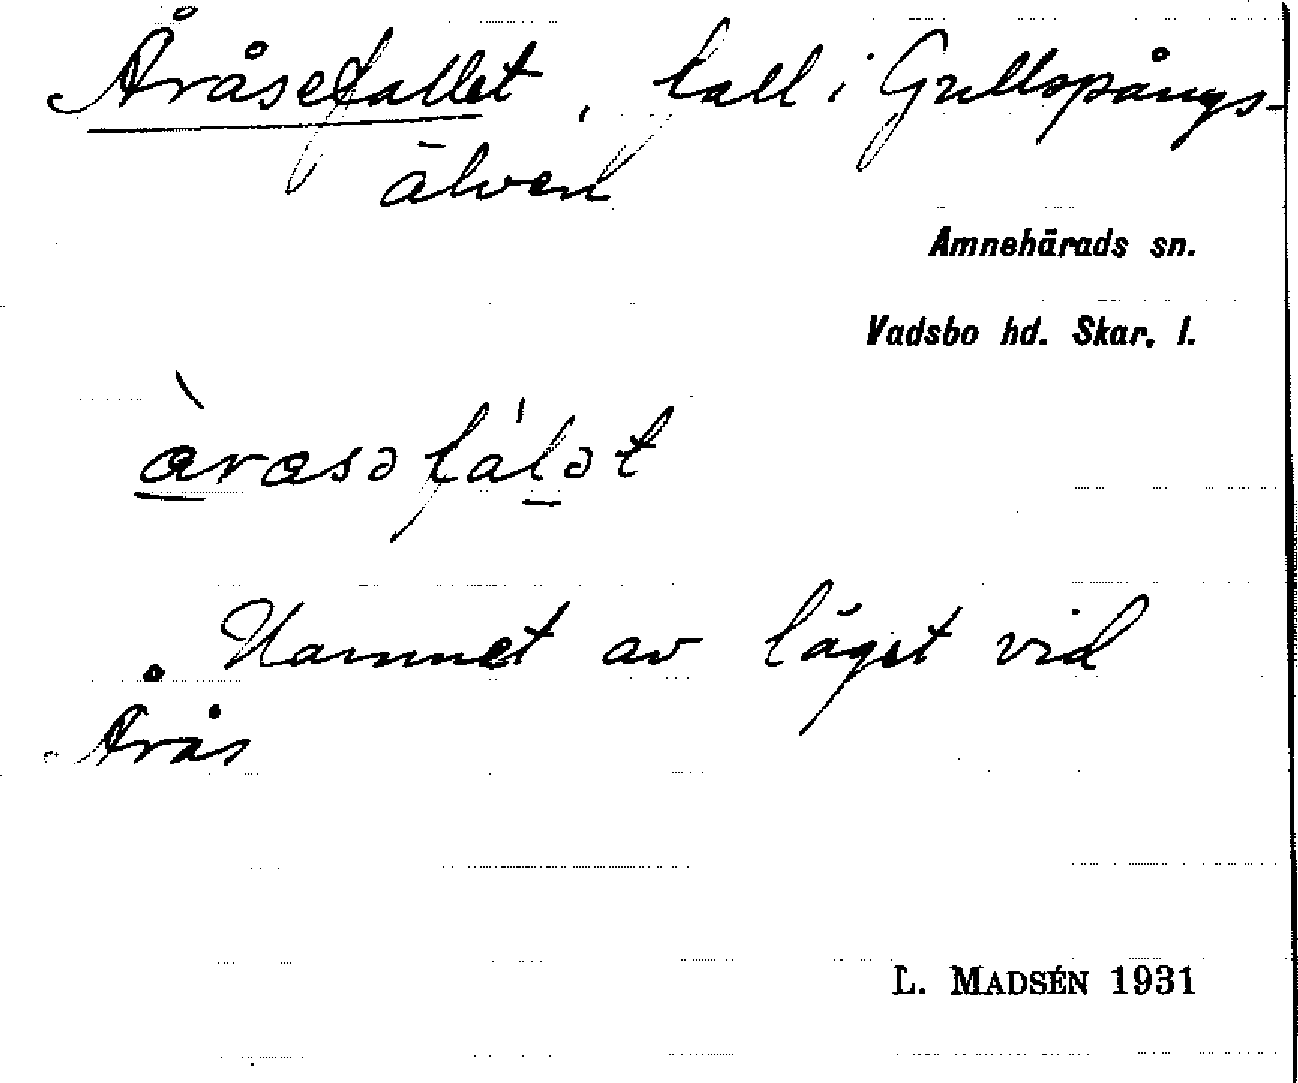 Åråsefallet, fall i Gullspångs-
älven
Amnehärads sn.
Vadsbo hd. Skar. l.
Namnet av läget vid
Årås
L. MADSÉN 1931